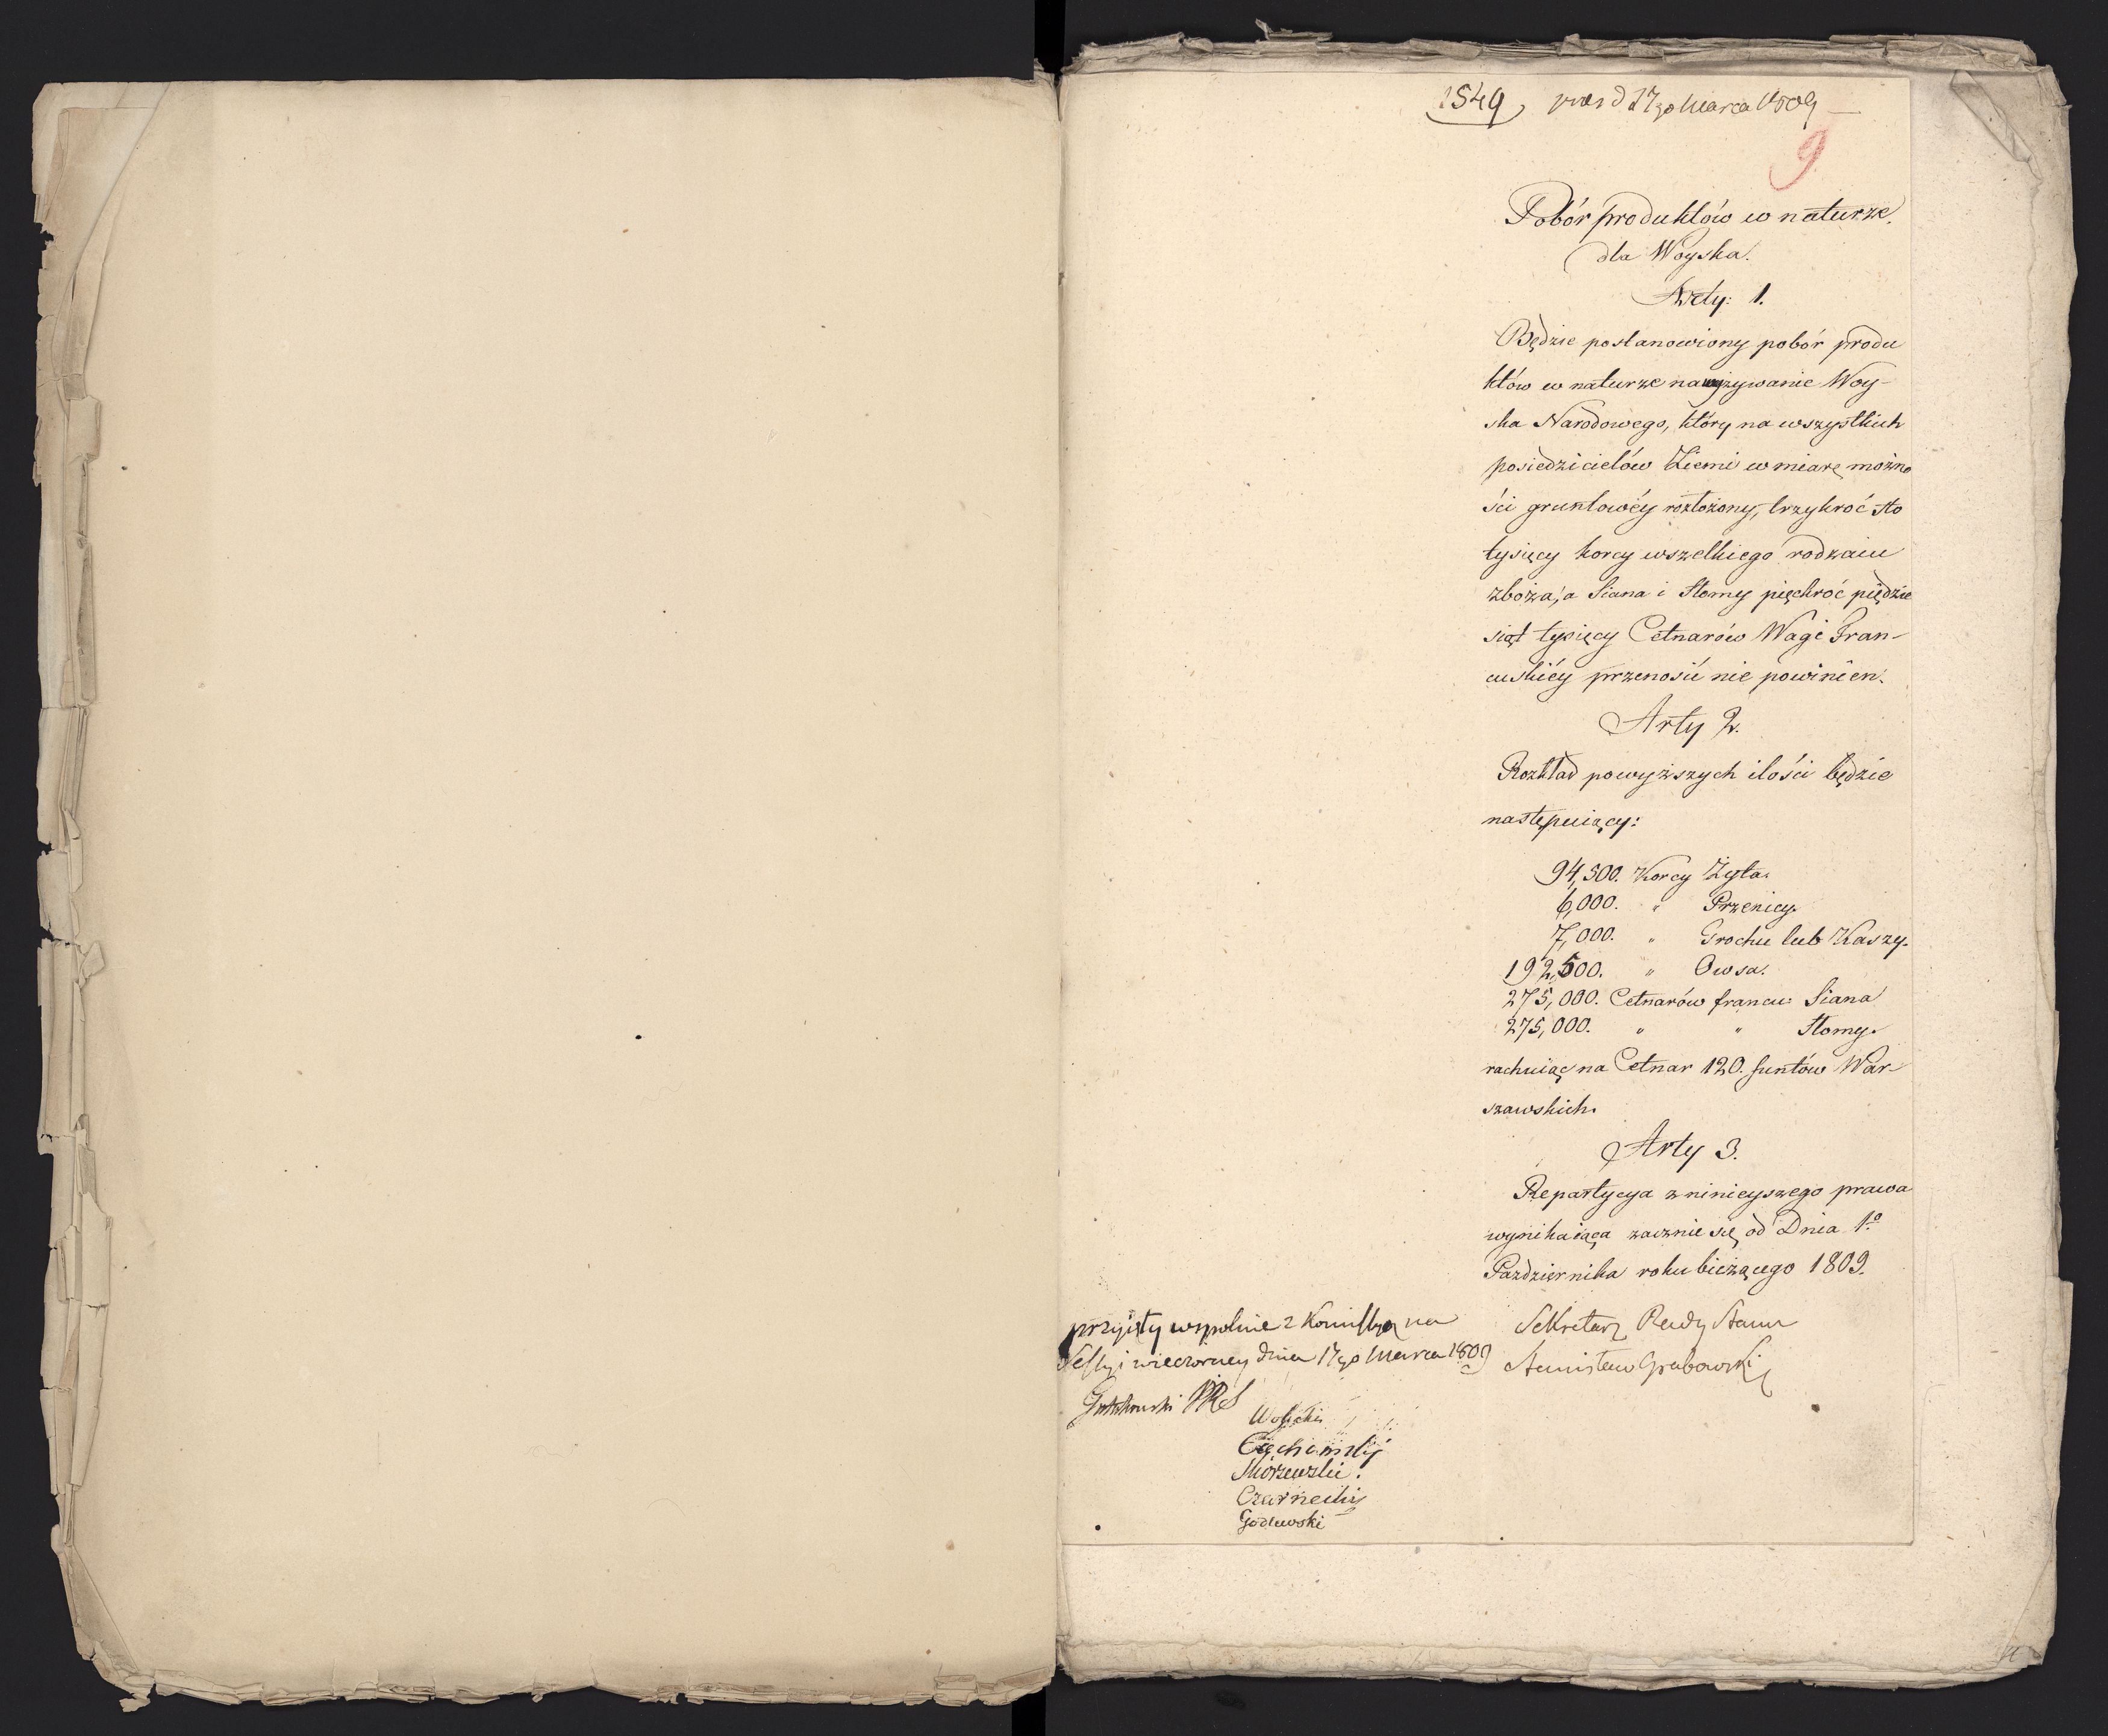 1549, pres d 17go Marca 1809
9
Pobór produktów w naturze
dla Woyska.
Arty: 1.
Będzie postanowiony pobór produ
któw w naturze na wyżywanie Woy-
ska Narodowego, który na wszystkich
posiedzicielów Ziemi w miarę możno
ści gruntowéy rozłożony, trzykroć sto
tysięcy korcy wszelkiego rodzaiu
zboża, a Siana i Słomy pięćkroć pięćdzie
siąt tysięcy Cetnarów Wagi Fran-
cuskiéy przenosić nie powinien.
Arty 2.
Rozkład powyższych ilości będzie
następuiący:
94,500. Korcy Żyta.
6,000. " Przenicy.
7,000. " Grochu lub Kaszy.
192,500. " Owsa.
275,000. Cetnarów francu: Siana
275,000. " " Słomy.
rachuiąc na Cetnar 120. funtów War-
szawskich.
Arty 3.
Repartycya z ninieyszego prawa
wynikaiąca zacznie się od Dnia 1º
Pazdziernika roku bieżącego 1809.
przyięty wspolnie z Kommissyą na
Sessyi wieczorney dnia 17go Marca 1809
Gutakowski PRS
Wolicki
Ciechomski
Skórzewski.
Czarnecki
Godlewski
Sekretarz Rady Stanu
Stanisław Grabowski